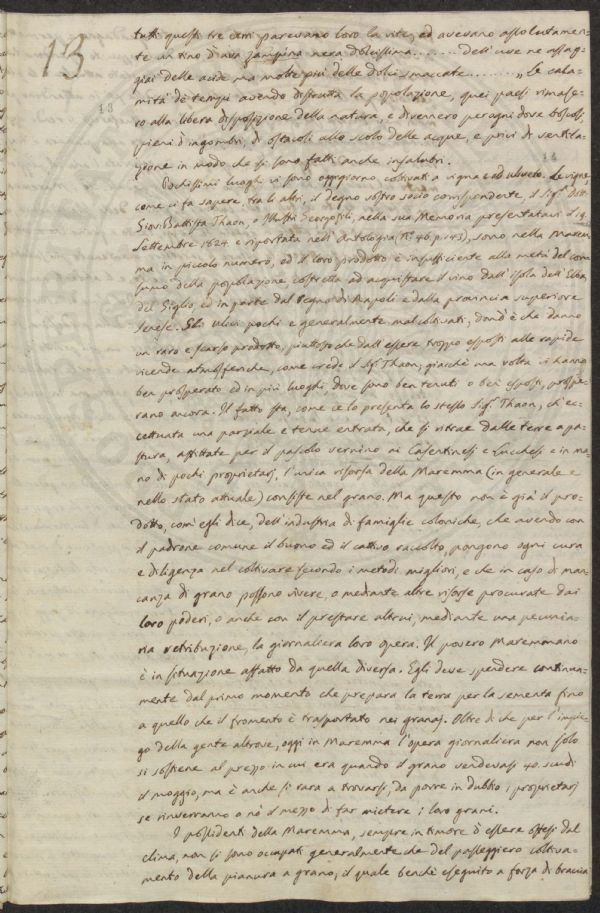 13
13
14
tutti questi tre anni parevano loro la vite, ed avevano assolutamen-
te un tino d'uva zampina nera dolcissima........ dell'uve ne assag-
giai delle acide ma molte più delle dolci smaccate.......... „ Le cala-
mità de' tempi avendo distrutta la popolazione, quei paesi rimase-
ro alla libera disposizione della natura, e divennero per ogni dove boscosi,
pieni d'ingombri, di ostacoli allo scolo delle acque, e privi di ventila-
zione in modo che si sono fatti anche insalubri.
Pochissimi luoghi vi sono oggigiorno coltivati a vigna e ad uliveto. Le vigne,
come ci fa sapere, tra li altri, il degno nostro socio corrispondente, il Sig.r Dott.
Giov: Battista Thaon, o Illustri Georgofili, nella sua Memoria presentatavi il 19.
Settembre 1824. e riportata nell'Antologia, N.o 46. p. 143), sono nella Marem-
ma in piccolo numero, ed il loro prodotto è insufficiente alla metà del con-
sumo della popolazione costretta ad acquistare il vino dall'isola dell'Elba,
del Giglio, ed in parte dal Regno di Napoli e dalla provincia superiore
Senese. Gli ulivi pochi e generalmente mal coltivati, dond'è che danno
un raro e scarso prodotto, piuttosto che dall'essere troppo esposti alle rapide
vicende atmosferiche, come crede il Sig.r Thaon; giacchè una volta vi hanno
ben prosperato ed in più luoghi, dove sono ben tenuti o ben esposti, prospe-
rano ancora. Il fatto sta, come ce lo presenta lo stesso Sig.r Thaon, ch'ec-
cettuata una parziale e tenue entrata, che si ritrae dalle terre a pa-
stura, affittate per il pascolo vernino ai Casentinesi e Lucchesi e in ma-
no di pochi proprietarj, l'unica risorsa della Maremma (in generale e
nello stato attuale) consiste nel grano. Ma questo non è già il pro-
dotto, com'egli dice, dell'industria di famiglie coloniche, che avendo con
il padrone comune il buono ed il cattivo raccolto, pongono ogni cura
e diligenza nel coltivare secondo i metodi migliori, e che in caso di man-
canza di grano possono vivere, o mediante altre risorse procurate dai
loro poderi, o anche con il prestare altrui, mediante una pecunia-
ria retribuzione, la giornaliera loro opera. Il povero Maremmano
è in situazione affatto da quella diversa. Egli deve spendere continua-
mente dal primo momento che prepara la terra per la sementa fino
a quello che il fromento è trasportato nei granaj. Oltre di che per l'impie-
go della gente altrove, oggi in Maremma l'opera giornaliera non solo
si sostiene al prezzo in cui era quando il grano vendevasi 40. scudi
il moggio, ma è anche sì rara a trovarsi, da porre in dubbio i proprietarj
se rinverranno o nò il mezzo di far mietere i loro grani.
I possidenti della Maremma, sempre in timore d'essere offesi dal
clima, non si sono occupati generalmente che del passeggiero coltiva-
mento della pianura a grano, il quale benchè eseguito a forza di braccia